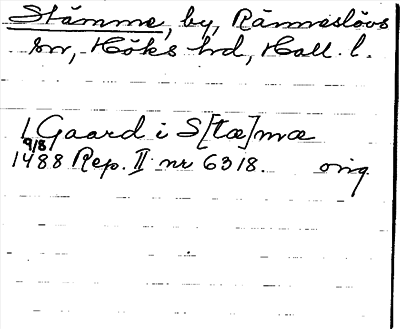 Stämme, by, Ränneslövs
sn, Höks hd, Hall. l.
1 Gaard i S[tæ]mæ
9/8
1488 Rep. II nr 6318. orig.